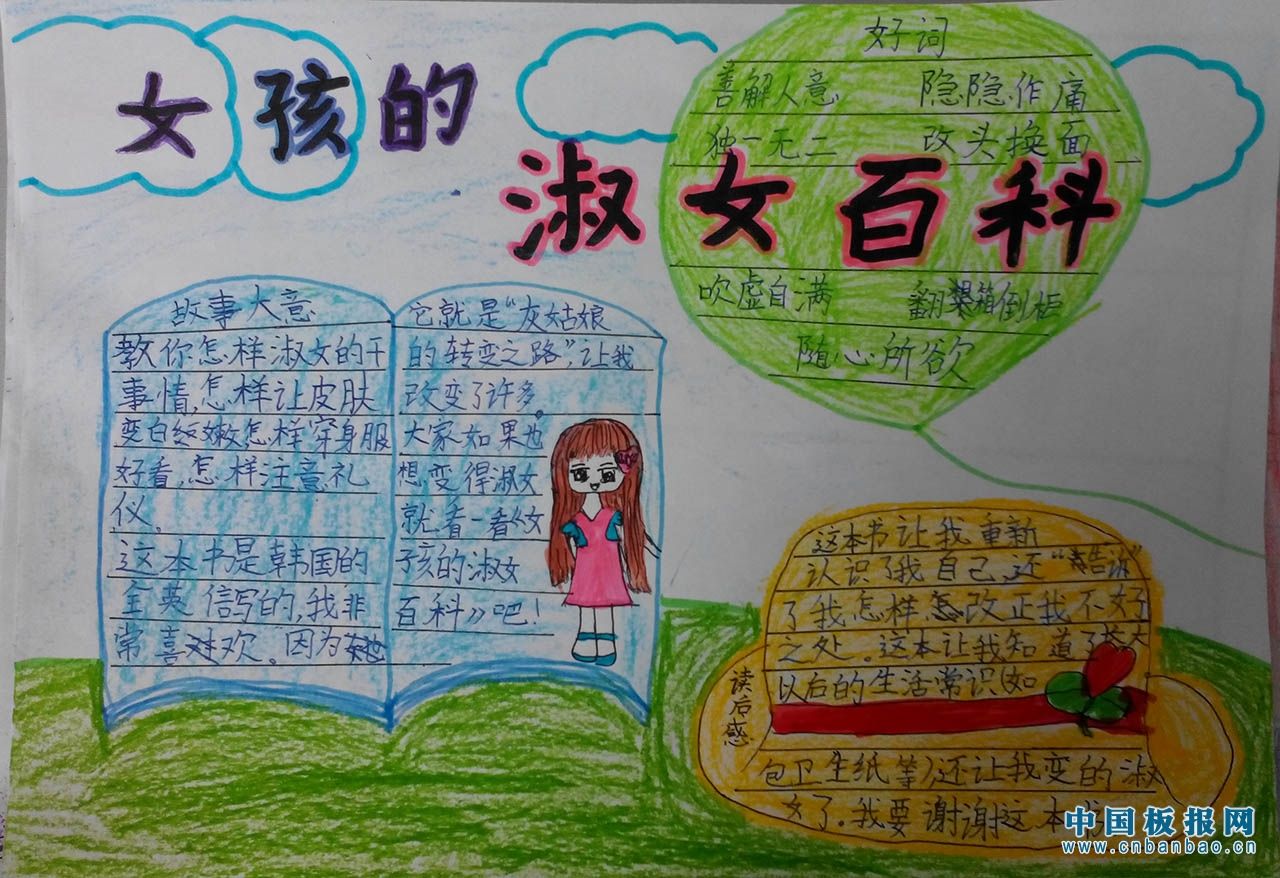 女孩的
淑女百科
好词
善解人意 隐隐作痛
独一无二 改头换面
吹虚自满 翻箱倒柜
随心所欲
故事大意
教你怎样淑女的干
事情,怎样让皮肤
变白嫩怎样穿身服
好看,怎样注意礼
仪,
这本书是韩国的
全英信写的,我非
常喜欢。因为
它就是“灰姑娘
的转变之路”,让我
改变了许多。
大家如果也
想变得淑女
就看一看《女
孩的淑女
百科》吧!
读后感
这本书让我重新
认识了我自己,还“告诉”
了我怎样改正我不好
之处。这本让我知道了长大
以后的生活常识(如
包卫生纸等)还让我变的淑
女了。我要谢谢这本书
中国板报网
www.cnbanbao.cn